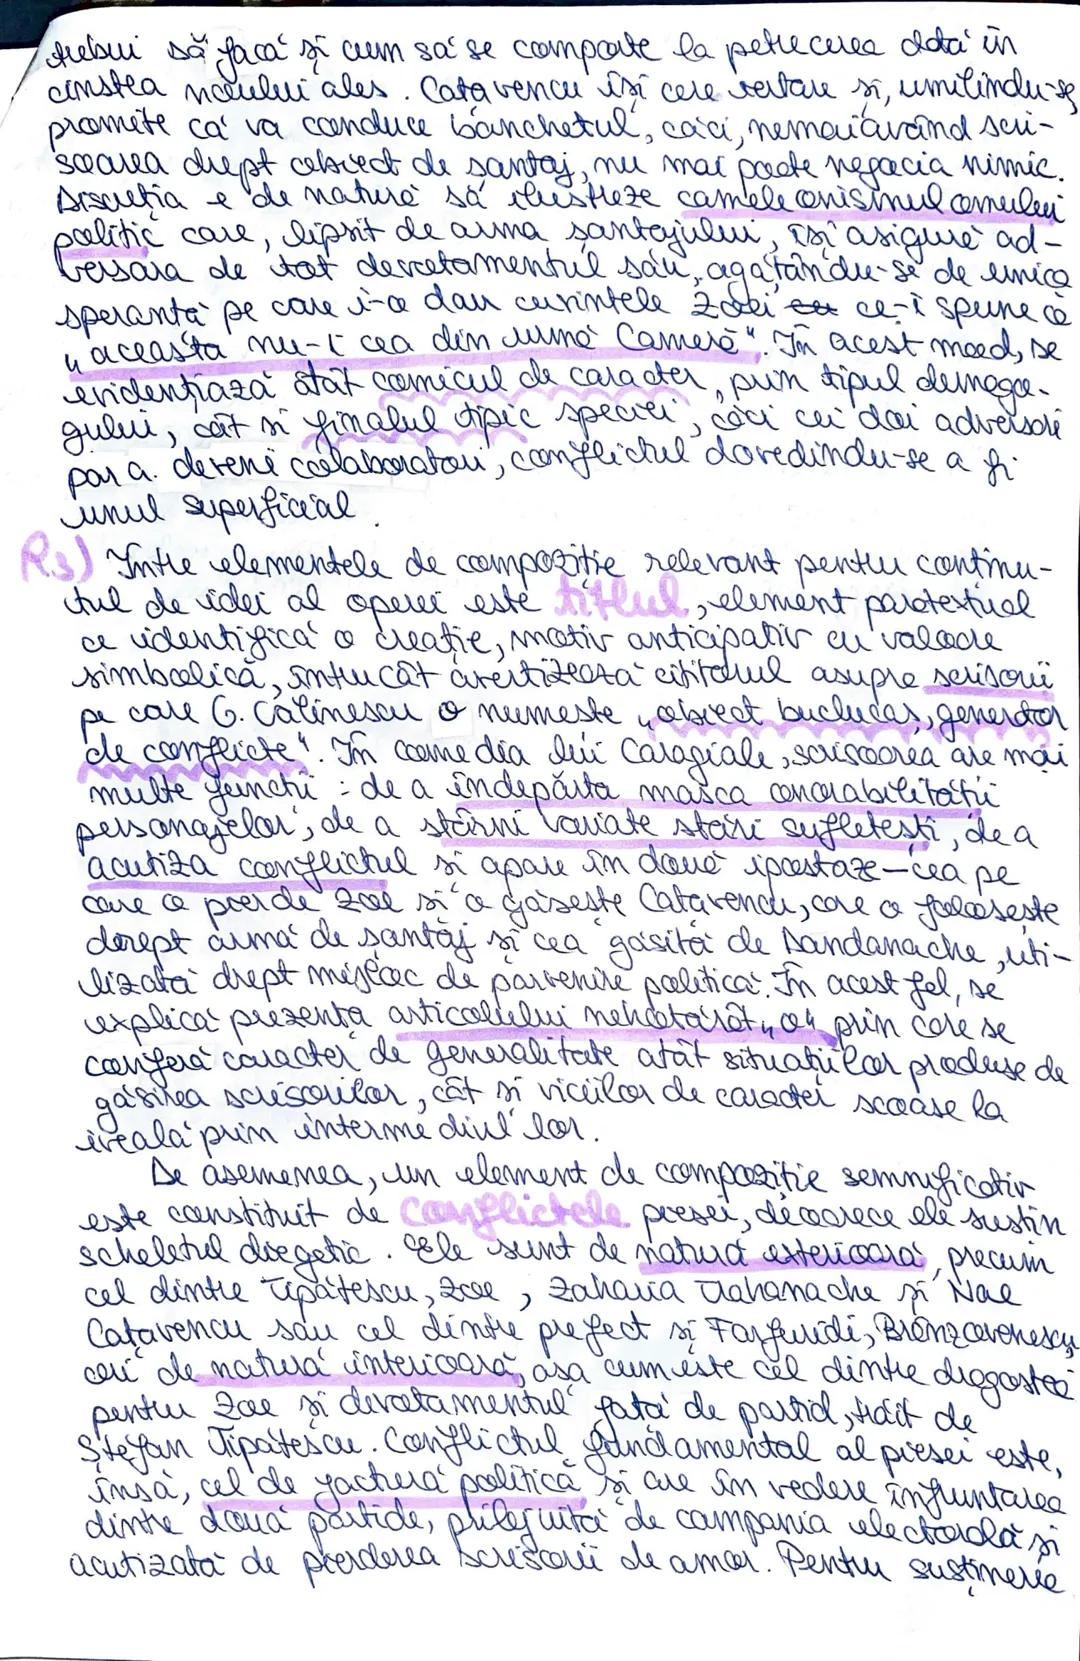 trebui să facă și cum să se comporte la petrecerea dată în
cinstea noului ales. Cațavencu își cere iertare și, umilindu-se,
promite că va conduce banchetul, căci, nemaiavând scri-
soarea drept obiect de șantaj, nu mai poate negocia nimic.
Discuția e de natură să ilustreze cameleonismul omului
politic care, lipsit de arma șantajului, își asigură ad-
versara de tot devotamentul său, agățându-se de unica
speranță pe care i-o dau cuvintele Zoei ce-i spune că
„aceasta nu-i cea din urmă Cameră". În acest mod, se
evidențiază atât comicul de caracter, prin tipul demago-
gului, cât și finalul tipic speciei, căci cei doi adversari
par a deveni colaboratori, conflictul dovedindu-se a fi
unul superficial.
R3) Între elementele de compoziție relevant pentru conținu-
tul de idei al operei este titlul, element paratextual
ce identifică o creație, motiv anticipativ cu valoare
simbolică, întrucât avertizează cititorul asupra scrisorii
pe care G. Călinescu o numește „obiect buclucaș, generator
de conflicte". În comedia lui Caragiale, scrisoarea are mai
multe funcții: de a îndepărta masca onorabilității
personajelor, de a stârni variate stări sufletești, de a
acutiza conflictul și apare în două ipostaze - cea pe
care o pierde Zoe și o găsește Cațavencu, care o folosește
drept armă de șantaj și cea găsită de Dandanache, uti-
lizată drept mijloc de parvenire politică. În acest fel, se
explică prezența articolului nehotărât „o", prin care se
conferă caracter de generalitate atât situațiilor produse de
găsirea scrisorilor, cât și viciilor de caracter scoase la
iveală prin intermediul lor.
De asemenea, un element de compoziție semnificativ
este constituit de conflictele piesei, deoarece ele susțin
scheletul diegetic. Ele sunt de natură exterioară, precum
cel dintre Tipătescu, Zoe, Zaharia Trahanache și Nae
Cațavencu sau cel dintre prefect și Farfuridi, Brânzovenescu,
ori de natură interioară, așa cum este cel dintre dragostea
pentru Zoe și devotamentul față de partid, trăit de
Ștefan Tipătescu. Conflictul fundamental al piesei este,
însă, cel de factură politică și are în vedere înfruntarea
dintre două partide, prilejuită de campania electorală și
acutizată de pierderea scrisorii de amor. Pentru susținerea